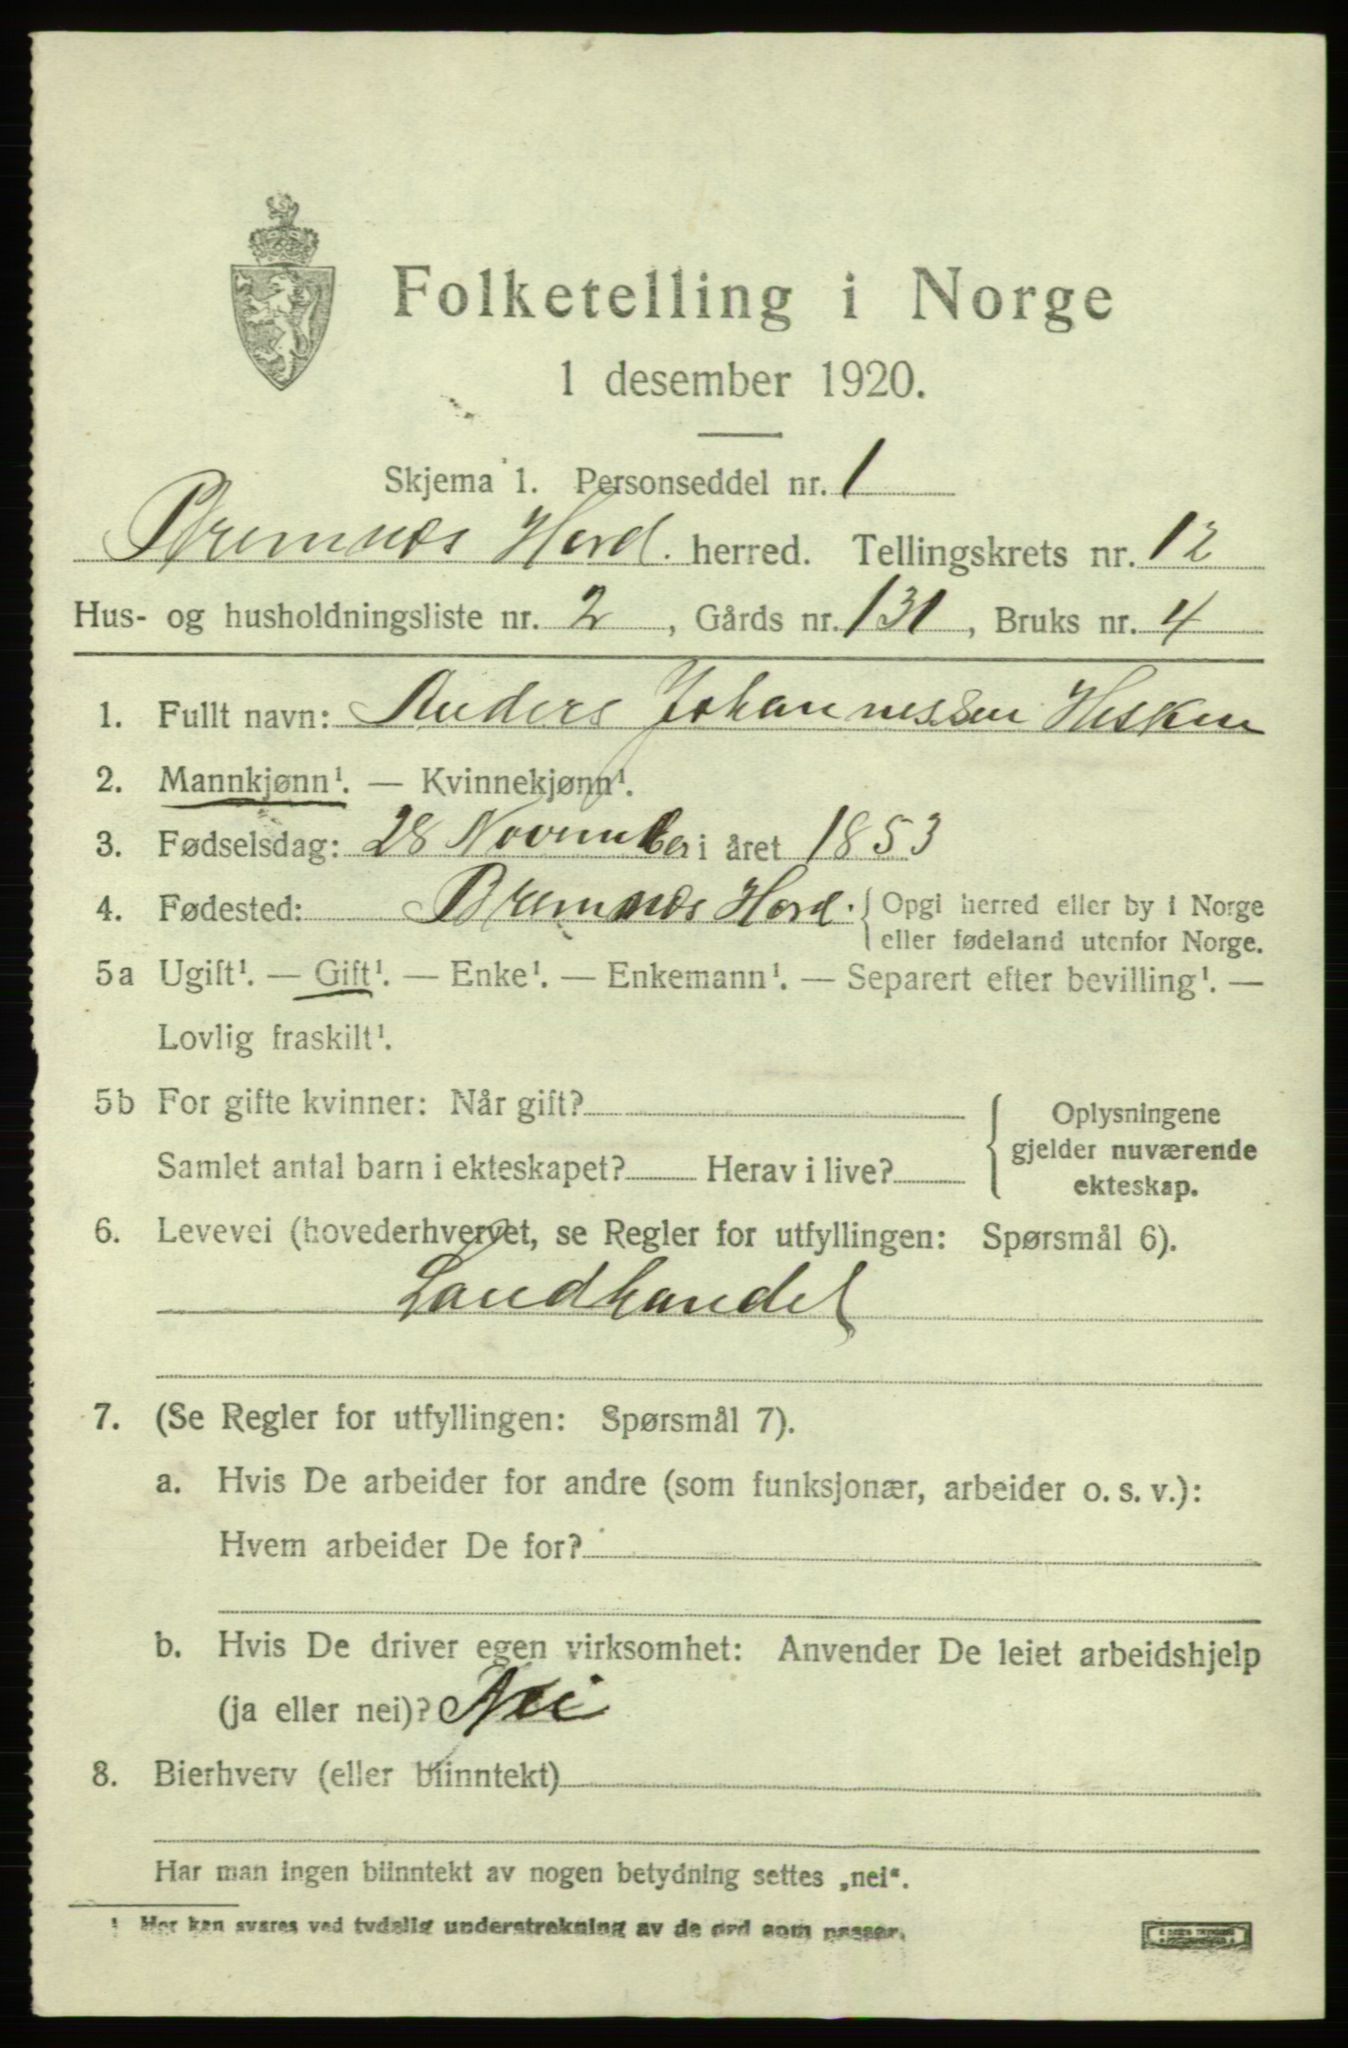 Folketelling i Norge
1 desember 1920.
Skjema 1. Personseddel nr. 1
Bremnes Hord. herred. Tellingskrets nr. 12
Hus- og husholdningsliste nr. 2, Gårds nr. 131, Bruks nr. 4
1. Fullt navn: Anders Johannessen Hisken
2. Mannkjønn¹. — Kvinnekjønn¹.
3. Fødselsdag: 28 November i året 1853
4. Fødested: Bremnes Hord. { Opgi herred eller by i Norge
eller fødeland utenfor Norge.
5a Ugift¹. — Gift¹. — Enke¹. — Enkemann¹. — Separert efter bevilling¹. —
Lovlig fraskilt¹.
5b For gifte kvinner: Når gift?
Samlet antal barn i ekteskapet? Herav i live?
{ Oplysningene
gjelder nuværende
ekteskap.
6. Levevei (hovederhvervet, se Regler for utfyllingen: Spørsmål 6).
Landhandel
7. (Se Regler for utfyllingen: Spørsmål 7).
a. Hvis De arbeider for andre (som funksjonær, arbeider o. s. v.):
Hvem arbeider De for?
b. Hvis De driver egen virksomhet: Anvender De leiet arbeidshjelp
(ja eller nei)? Nei
8. Bierhverv (eller biinntekt)
Har man ingen biinntekt av nogen betydning settes „nei“.
¹ Her kan svares ved tydelig understrekning av de ord som passer.